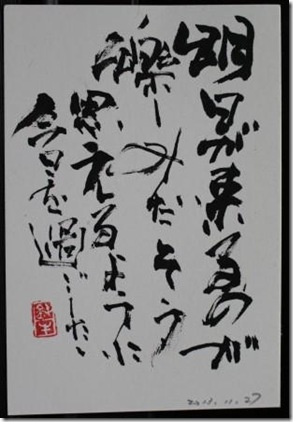 明日が来るのが
楽しみだそう
思えるように
今日を過ごしたい
2018.11.27